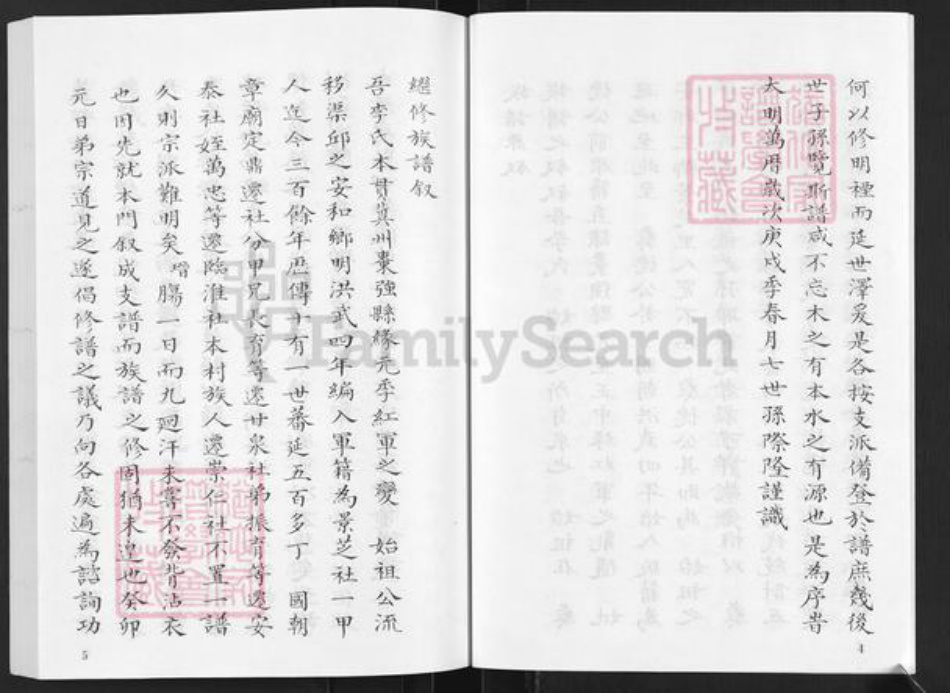 何以修明禋而延世澤爰是各按支派備登於譜庶幾後
世子孫覽斯譜咸不忘木之有本水之有源也是為序旹
大明萬曆歲次庚戌季春月七世孫際隆謹識
4
繼修族譜叙
吾李氏本貫冀州棗強縣緣元季紅軍之變 始祖公流
移渠邱之安和鄉明洪武四年編入軍籍為景芝社一甲
人迄今三百餘年歷傳十有一世蕃延五百多丁 國朝
章廟定鼎遷社分甲兄長育等遷甘泉社弟振育等遷安
泰社姪萬忠等遷臨淮社本村族人遷崇仁社不置一譜
久則宗派難明矣增腸一日而九廻汗未嘗不發背沾衣
也因先就本門叙成支譜而族譜之修固猶未遑也癸卯
元日弟宗道見之遂倡修譜之議乃向各處遍為諮詢功
5
FamilySearch